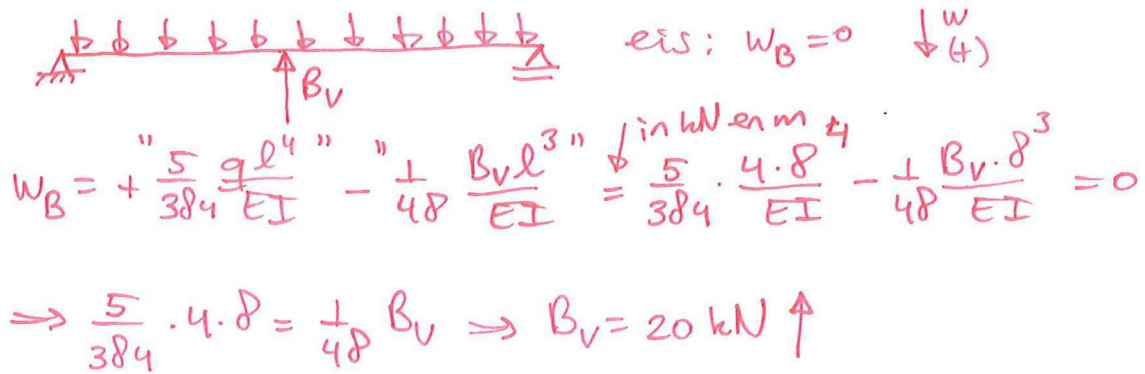 eis: w_B = 0 w (+)
B_V
in kN en m
w_B = + "5/384 ql⁴/EI" - "1/48 B_V l³/EI" = 5/384 · 4·8⁴/EI - 1/48 B_V·8³/EI = 0
⇒ 5/384 · 4·8 = 1/48 B_V ⇒ B_V = 20 kN ↑